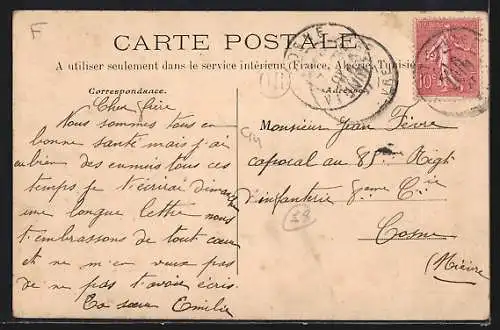 F
CARTE POSTALE
A utiliser seulement dans le service intérieur (France, Algérie, Tunisie
Correspondance.
Adresse
10c
Cher frère
Nous sommes tous en
bonne santé mais j'ai
eu bien des ennuis tous ces
temps je t'écrirai dimanche
une longue lettre nous
t'embrassons de tout cœur
et ne m'en veux pas
de ne pas t'avoir écris.
Ta sœur Emilie
Monsieur Jean Fèvre
caporal au 85ème Régt
d'infanterie 8ème Cie
Cosne
(Nièvre